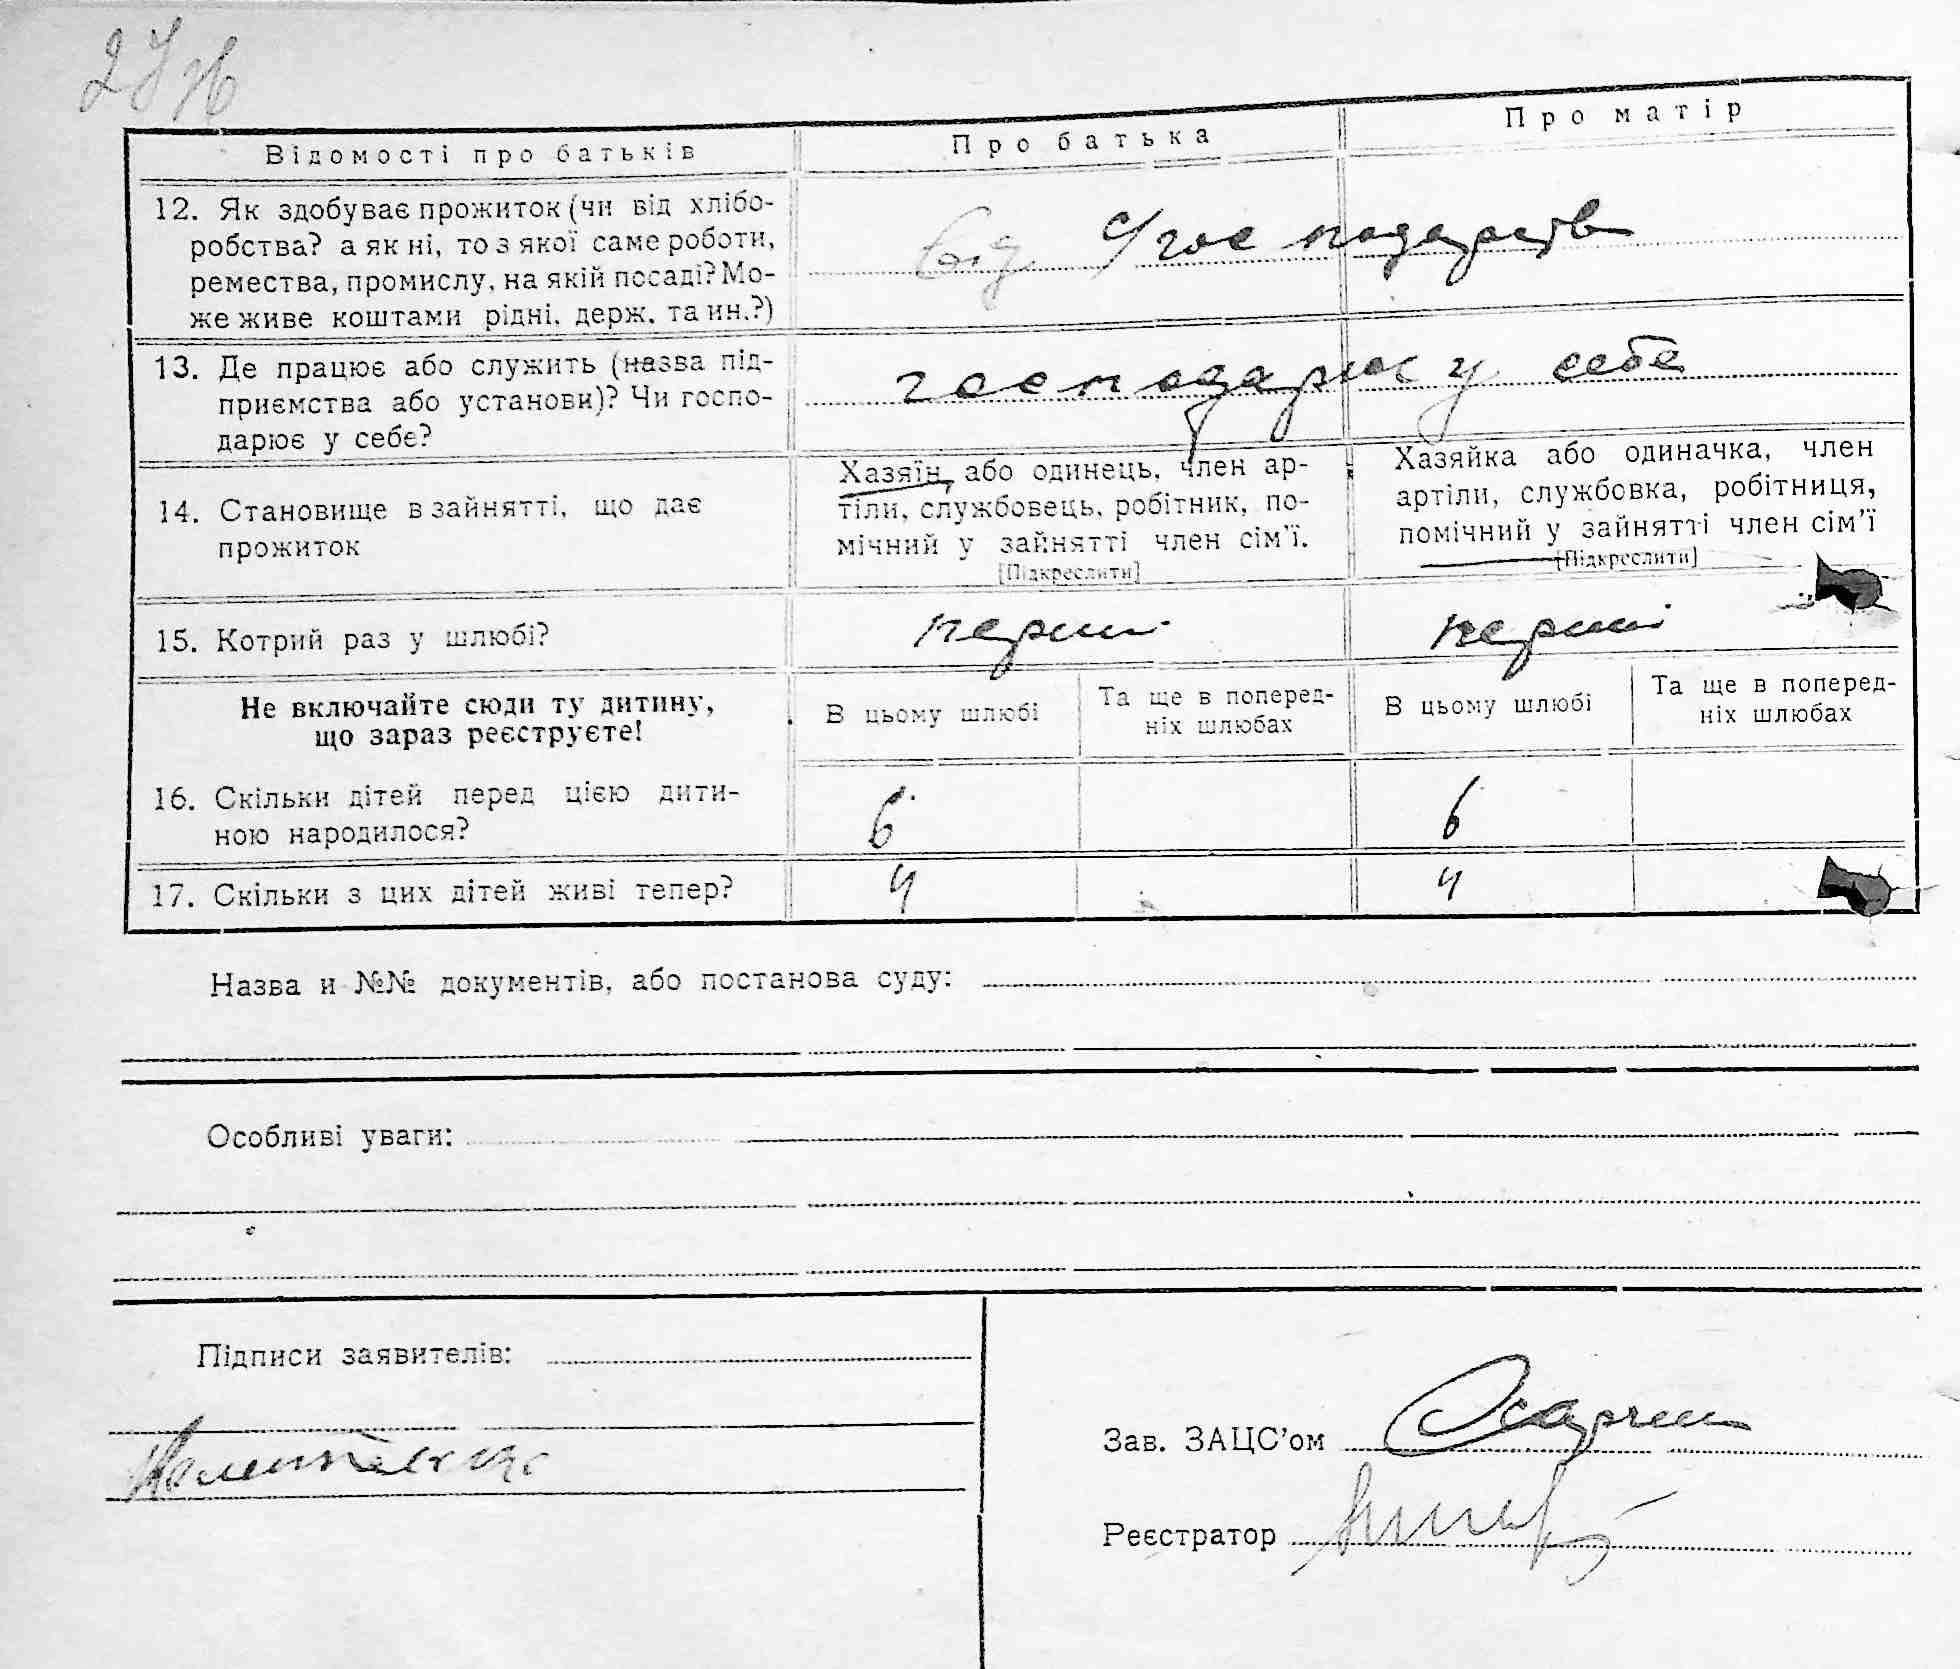 Відомості про батьків
Про батька
Про матір
12. Як здобуває прожиток (чи від хлібо-
робства? а як ні, то з якої саме роботи,
ремества, промислу, на якій посаді? Мо-
же живе коштами рідні, держ. та ин.?)
від с/господарств
13. Де працює або служить (назва під-
приємства або установи)? Чи госпо-
дарює у себе?
господарює у себе
14. Становище в зайнятті, що дає
прожиток
Хазяїн, або одинець, член ар-
тіли, службовець, робітник, по-
мічний у зайнятті член сім'ї.
[Підкреслити]
Хазяйка або одиначка, член
артіли, службовка, робітниця,
помічний у зайнятті член сім'ї
[Підкреслити]
15. Котрий раз у шлюбі?
перши
перши
Не включайте сюди ту дитину,
що зараз реєструєте!
В цьому шлюбі
Та ще в поперед-
ніх шлюбах
В цьому шлюбі
Та ще в поперед-
ніх шлюбах
16. Скільки дітей перед цією дити-
ною народилося?
6
6
17. Скільки з цих дітей живі тепер?
4
4
Назва и №№ документів, або постанова суду:
Особливі уваги:
Підписи заявителів:
Зав. ЗАЦС'ом
Реєстратор